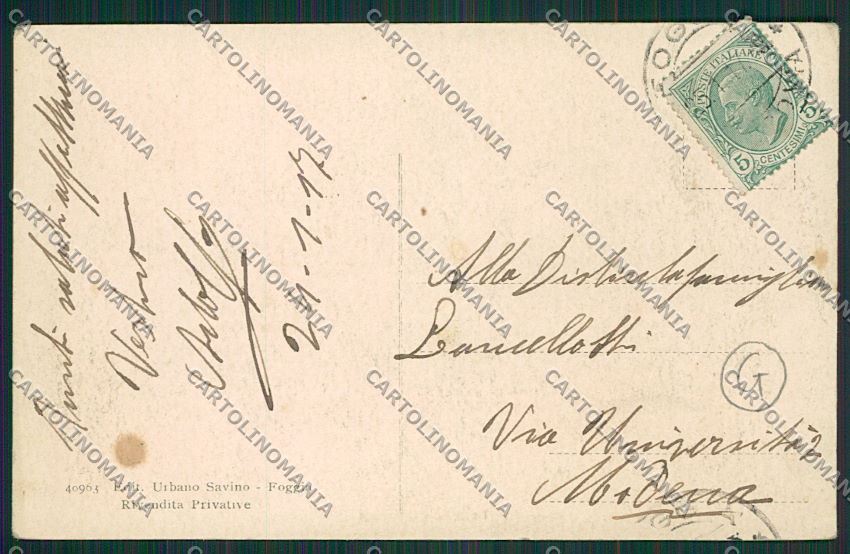 Tanti saluti affettuosi
Vostro
Adolfo
21-1-17
40963 Edit. Urbano Savino - Foggia
Rivendita Privative
FOGG
POSTE ITALIANE
5 CENTESIMI 5
Alla Distinta famiglia
Lancellotti
Via Università 2
Modena
G
CARTOLINOMANIA